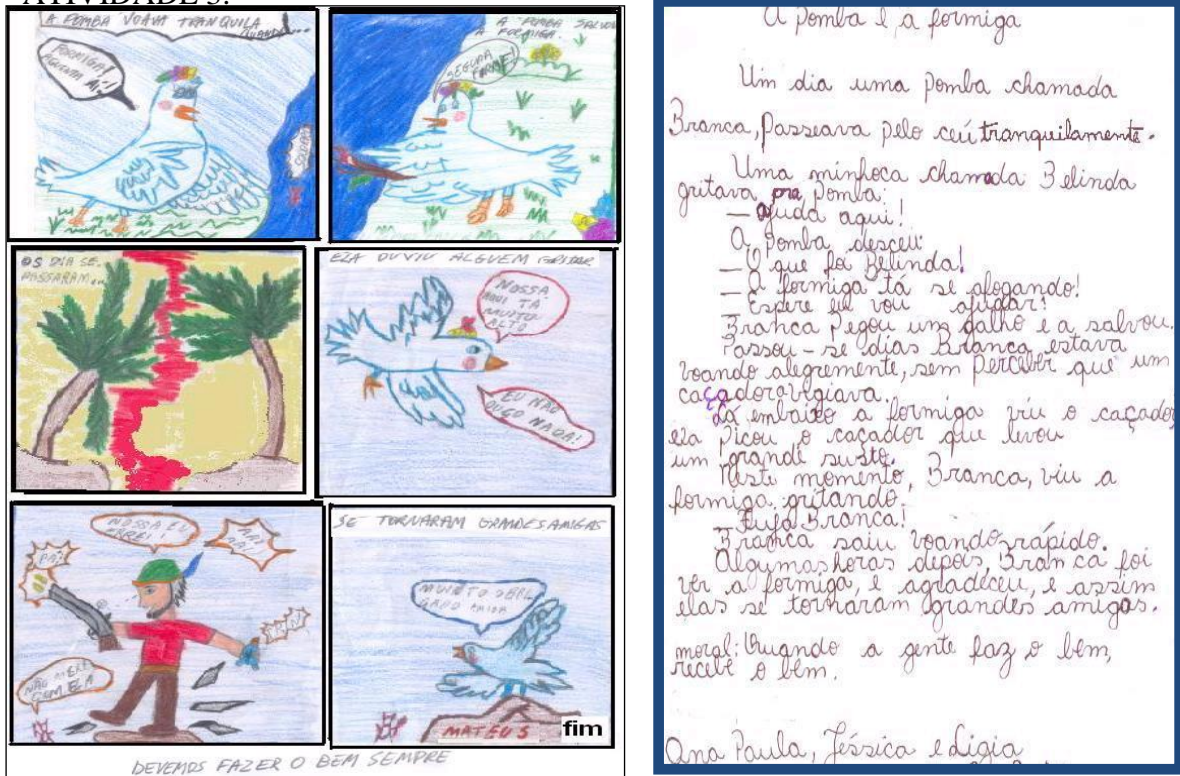 ATIVIDADE 3:
A POMBA VOAVA TRANQUILA
QUANDO...
FORMIGA!
AGUENTA AÍ!
SOCORRO
A POMBA SALVOU
A FORMIGA.
SEGURA
FIRME!
OS DIA SE
PASSARAM...
ELA OUVIU ALGUEM GRITAR
NOSSA
AQUI TÁ
MUITO
ALTO
EU NÃO
OUÇO
NADA!
NOSSA EU
ERREI!
NÃO
COM ELA
SE TORNARAM GRANDES AMIGAS
MUINTO OBRI
GADO AMIGA
MATEUS
fim
DEVEMOS FAZER O BEM SEMPRE
A pomba e a formiga
Um dia uma pomba chamada
Branca, Passeava pelo ceú tranquilamente.
Uma minhoca chamada Belinda
gritava pra Pomba:
— Ajuda aqui!
— A Pomba desceu:
— O que foi Belinda!
— A formiga ta se afogando!
— Espere ela vou te ajudar!
Branca Pegou um galho e a salvou.
Passou-se dias Branca estava
voando alegremente, sem perceber que um
caçador vigiava.
Lá embaixo a formiga viu o caçador
ela picou o caçador que levou
um grande susto.
Neste momento, Branca, viu a
formiga gritando!
— Fuja Branca!
Branca saiu voando rápido.
Algumas horas depois Branca foi
ver a formiga e agradeceu, e assim
elas se tornaram grandes amigas.
moral: Quando a gente faz o bem,
recebe o bem.
Ana Paula, Jessica e Ligia